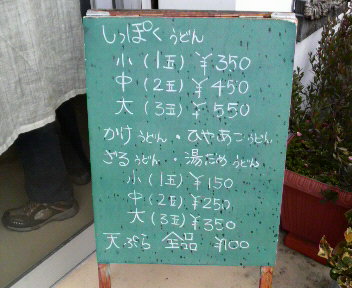 しっぽくうどん
小(1玉)¥350
中(2玉)¥450
大(3玉)¥550
かけうどん・ひやあつうどん
ざるうどん・湯だめうどん
小(1玉)¥150
中(2玉)¥250
大(3玉)¥350
天ぷら 全品 ¥100